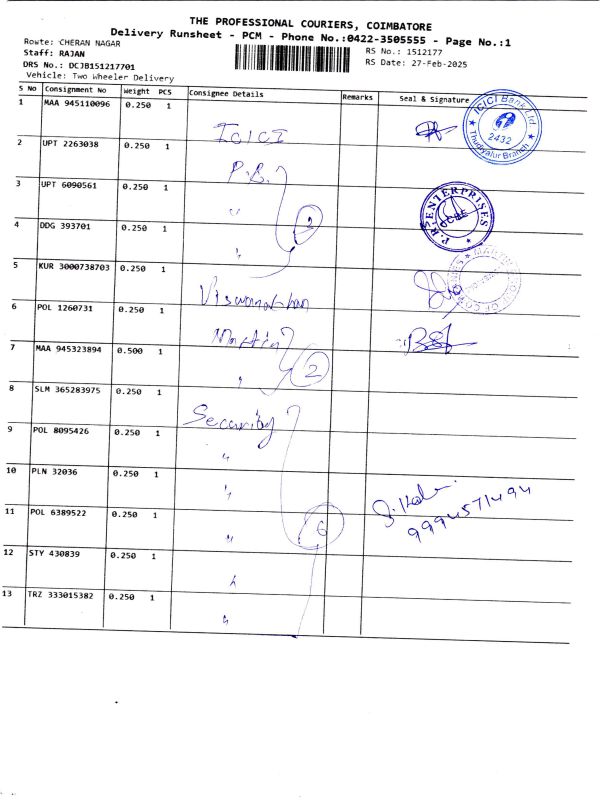 THE PROFESSIONAL COURIERS, COIMBATORE
Delivery Runsheet - PCM - Phone No.:0422-3505555 - Page No.:1
Route: CHERAN NAGAR
RS No.: 1512177
Staff: RAJAN
RS Date: 27-Feb-2025
DRS No.: DCJB151217701
Vehicle: Two Wheeler Delivery
S No Consignment No Weight PCS Consignee Details Remarks Seal & Signature
1 MAA 945110096 0.250 1 ICICI
ICICI Bank Ltd
2432
Thudiyalur Branch
2 UPT 2263038 0.250 1 P.B.
3 UPT 6090561 0.250 1 "
P.B. ENTERPRISES
CCBE
4 DDG 393701 0.250 1 "
2
5 KUR 3000738703 0.250 1 Viswanathan
6 POL 1260731 0.250 1 Martin
7 MAA 945323894 0.500 1 "
2
8 SLM 365283975 0.250 1 Security
9 POL 8095426 0.250 1 "
10 PLN 32036 0.250 1 "
11 POL 6389522 0.250 1 "
6
9994571494
12 STY 430839 0.250 1 "
13 TRZ 333015382 0.250 1 "